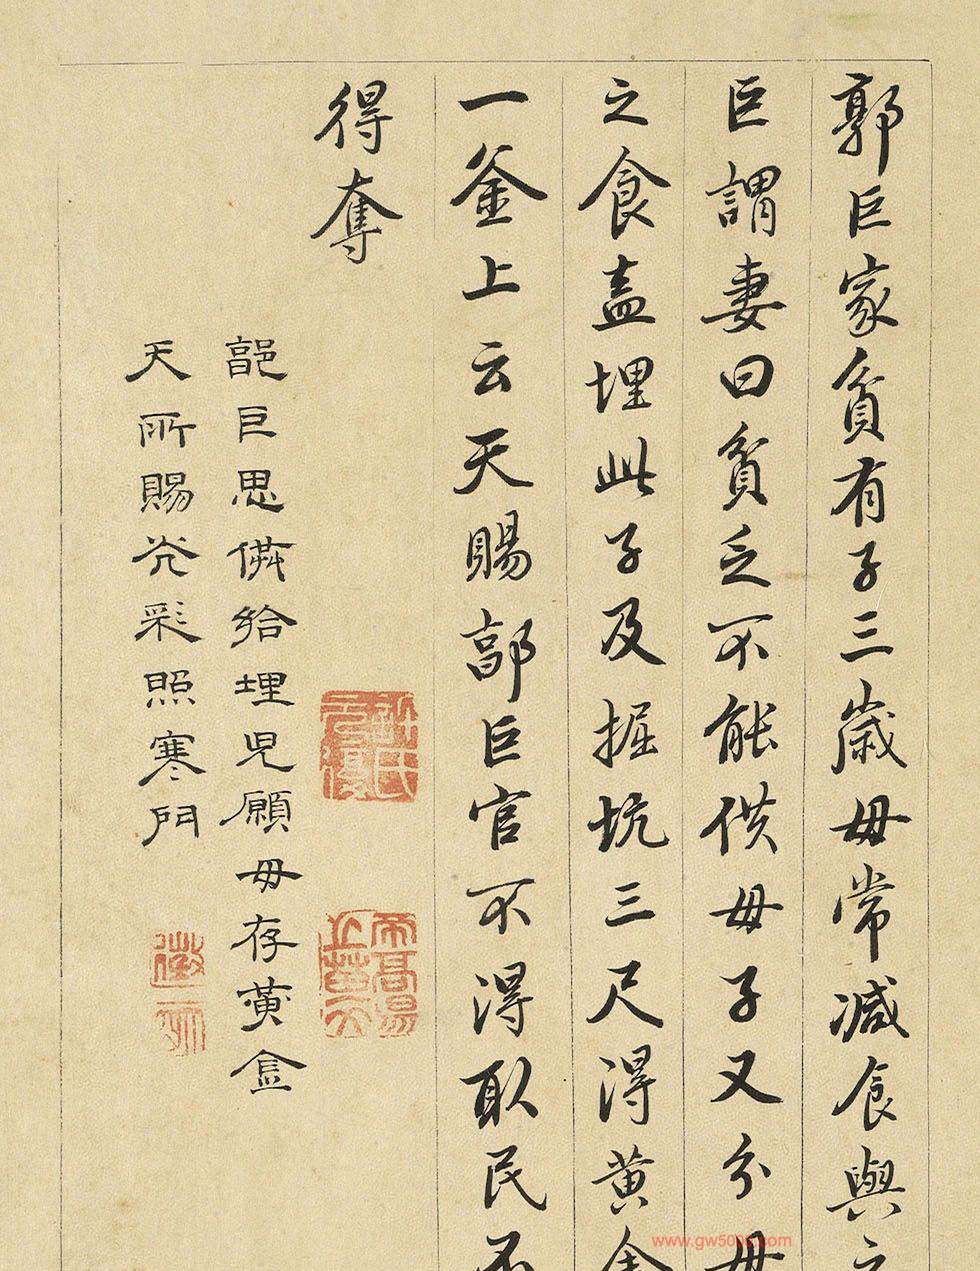 郭巨家貧有子三歲母常減食與之
巨謂妻曰貧乏不能供母子又分母
之食盍埋此子及掘坑三尺得黃金
一釜上云天賜郭巨官不得取民不
得奪
郭巨思供給埋兒願母存黃金
天所賜光彩照寒門